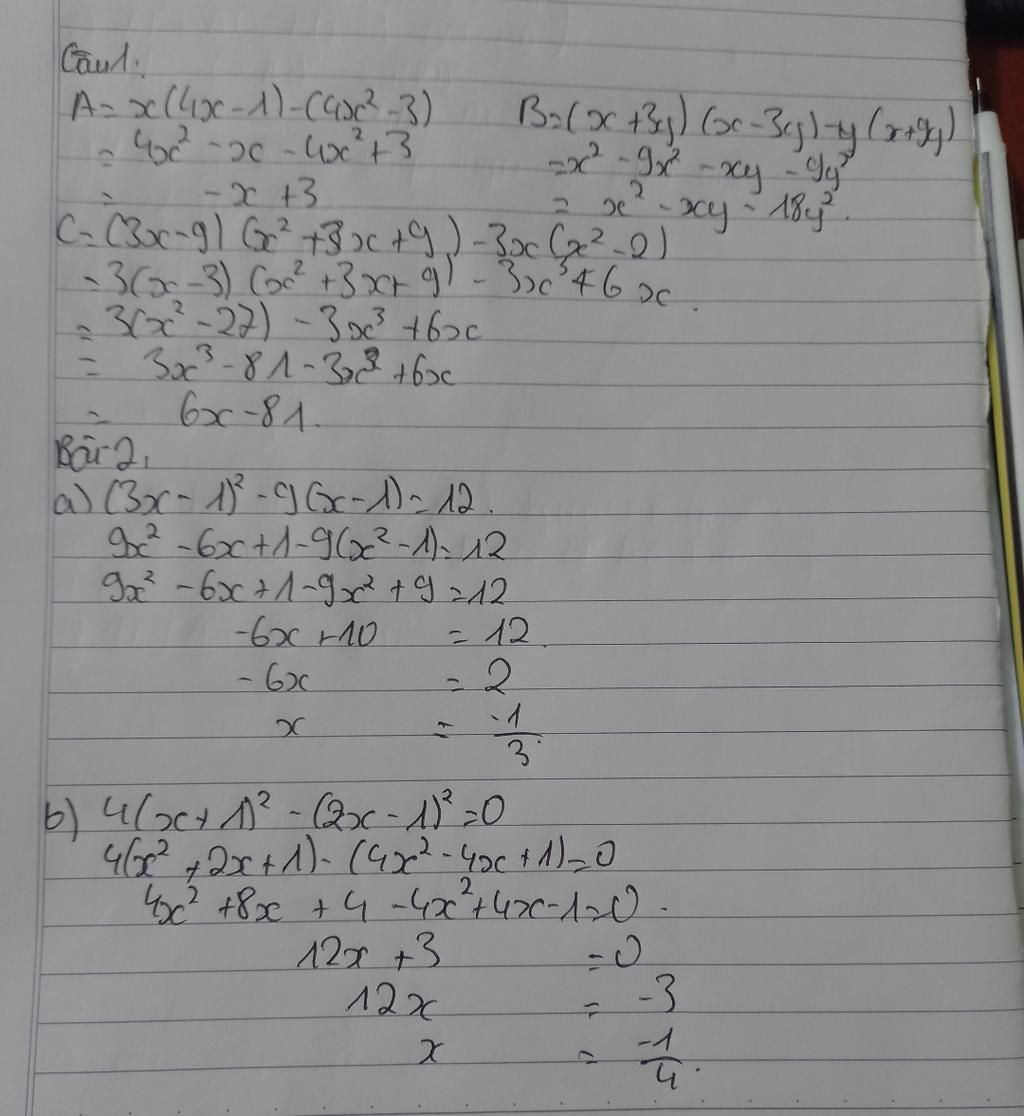 Câu 1:
A = x(4x - 1) - (4x² - 3)
= 4x² - x - 4x² + 3
= -x + 3
B = (x + 3y) (x - 3y) - y (x + 9y)
= x² - 9x² - xy - 9y²
= x² - xy - 18y².
C = (3x - 9) (x² + 3x + 9) - 3x(x² - 2)
= 3(x - 3) (x² + 3x + 9) - 3x³ + 6x.
= 3(x² - 27) - 3x³ + 6x
= 3x³ - 81 - 3x³ + 6x
= 6x - 81.
Bài 2,
a) (3x - 1)² - 9(x - 1) = 12.
9x² - 6x + 1 - 9(x² - 1) = 12
9x² - 6x + 1 - 9x² + 9 = 12
-6x + 10 = 12.
-6x = 2
x = -1/3.
b) 4(x + 1)² - (2x - 1)² = 0
4(x² + 2x + 1) - (4x² - 4x + 1) = 0
4x² + 8x + 4 - 4x² + 4x - 1 = 0.
12x + 3 = 0
12x = -3
x = -1/4.